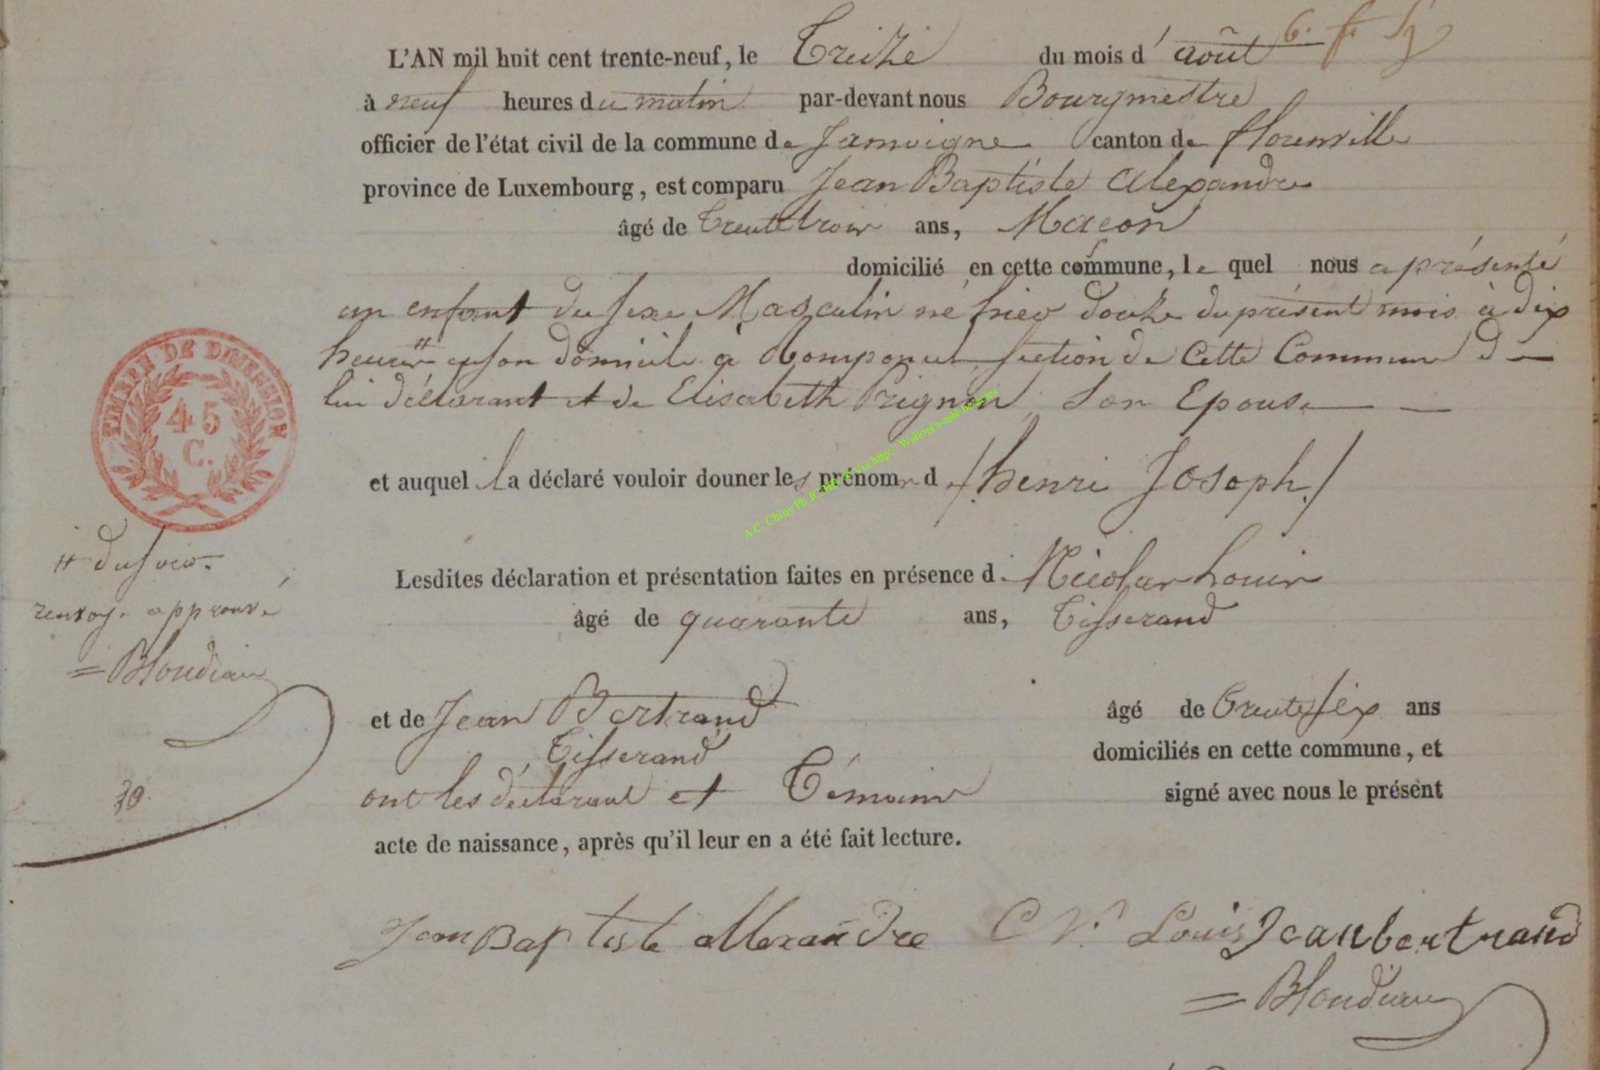 L'AN mil huit cent trente-neuf, le Treize du mois d' août
à neuf heures du matin par-devant nous Bourgmestre
officier de l'état civil de la commune de Jamoigne canton de florenville
province de Luxembourg, est comparu Jean Baptiste Alexandre
âgé de Trente trois ans, Macon
domicilié en cette commune, le quel nous a présenté
un enfant du sexe Masculin né hier douze du présent mois à dix
heures # en son domicile à Romponcel section de Cette Commune d
lui déclarant et de Elisabeth Prignon Son Epouse
et auquel il a déclaré vouloir donner les prénoms d /henri Joseph/
TIMBRE DE DIMENSION
45
C.
# du soir.
renvoye approuvé
= Blondiau
Lesdites déclaration et présentation faites en présence d. Nicolas Louis
âgé de quarante ans, Tisserand
et de Jean Bertrand âgé de Trente six ans
Tisserand domiciliés en cette commune, et
ont les déclarant et Témoins signé avec nous le présent
acte de naissance, après qu'il leur en a été fait lecture.
Jean Baptiste allexandre C N. Louis Jean bertrand
= Blondiau